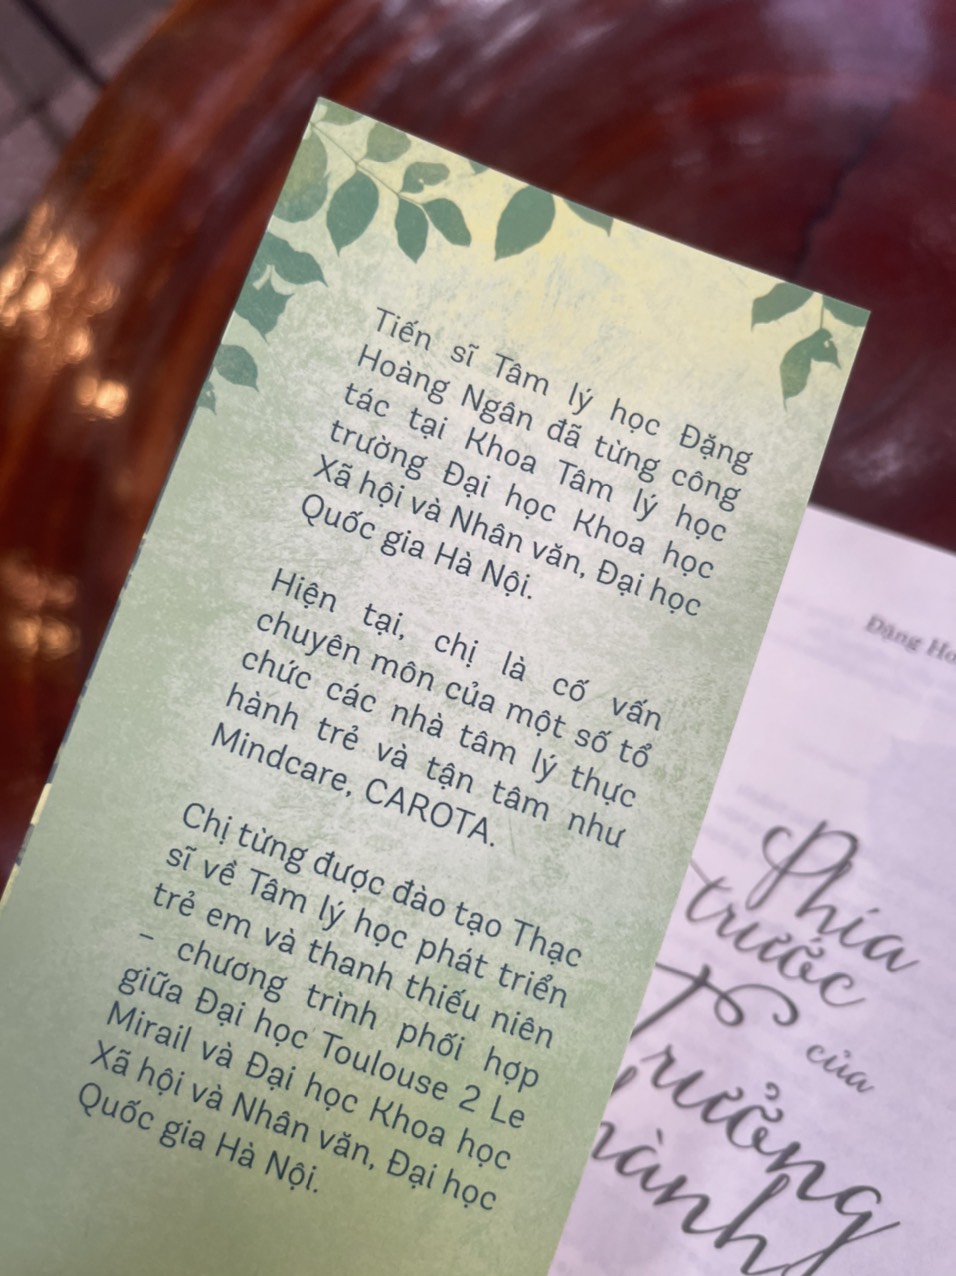 Tiến sĩ Tâm lý học Đặng
Hoàng Ngân đã từng công
tác tại Khoa Tâm lý học
trường Đại học Khoa học
Xã hội và Nhân văn, Đại học
Quốc gia Hà Nội.
Hiện tại, chị là cố vấn
chuyên môn của một số tổ
chức các nhà tâm lý thực
hành trẻ và tận tâm như
Mindcare, CAROTA.
Chị từng được đào tạo Thạc
sĩ về Tâm lý học phát triển
trẻ em và thanh thiếu niên
– chương trình phối hợp
giữa Đại học Toulouse 2 Le
Mirail và Đại học Khoa học
Xã hội và Nhân văn, Đại học
Quốc gia Hà Nội.
Đặng Ho
Phía
trước
của
Trưởng
hành